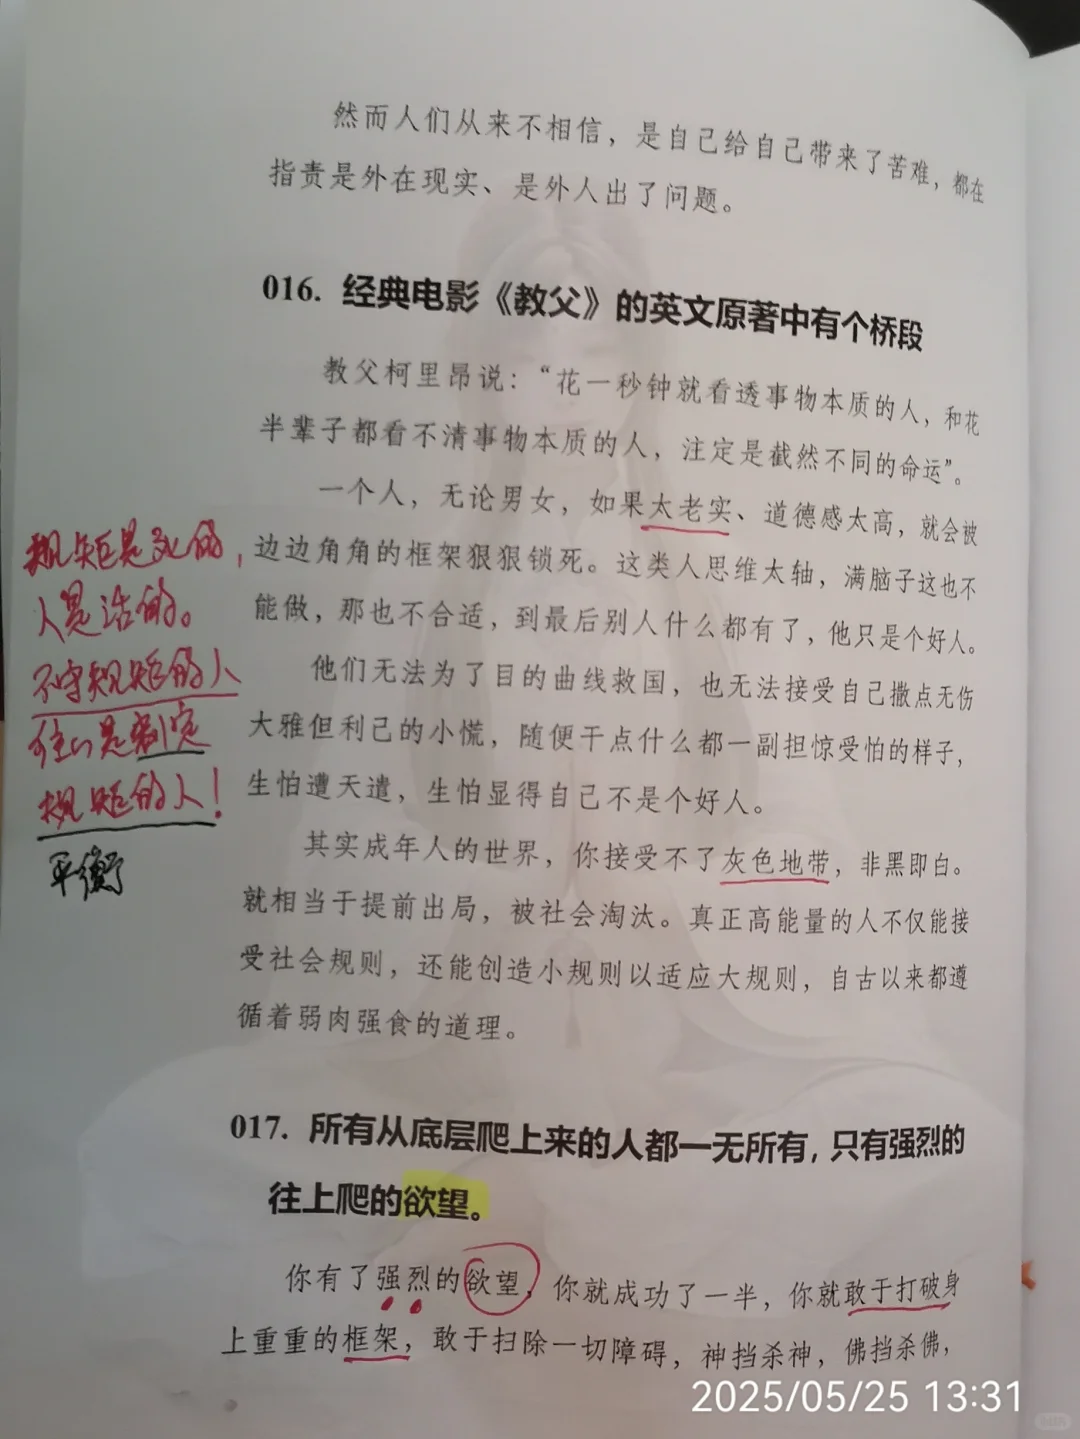 然而人们从来不相信，是自己给自己带来了苦难，都在
指责是外在现实、是外人出了问题。
016. 经典电影《教父》的英文原著中有个桥段
教父柯里昂说：“花一秒钟就看透事物本质的人，和花
半辈子都看不清事物本质的人，注定是截然不同的命运”。
一个人，无论男女，如果太老实、道德感太高，就会被
边边角角的框架狠狠锁死。这类人思维太轴，满脑子这也不
能做，那也不合适，到最后别人什么都有了，他只是个好人。
他们无法为了目的曲线救国，也无法接受自己撒点无伤
大雅但利己的小慌，随便干点什么都一副担惊受怕的样子，
生怕遭天遣，生怕显得自己不是个好人。
其实成年人的世界，你接受不了灰色地带，非黑即白。
就相当于提前出局，被社会淘汰。真正高能量的人不仅能接
受社会规则，还能创造小规则以适应大规则，自古以来都遵
循着弱肉强食的道理。
规矩是死的，
人是活的。
不守规矩的人
往往是制定
规矩的人！
平衡
017. 所有从底层爬上来的人都一无所有，只有强烈的
往上爬的欲望。
你有了强烈的欲望，你就成功了一半，你就敢于打破身
上重重的框架，敢于扫除一切障碍，神挡杀神，佛挡杀佛，
2025/05/25 13:31